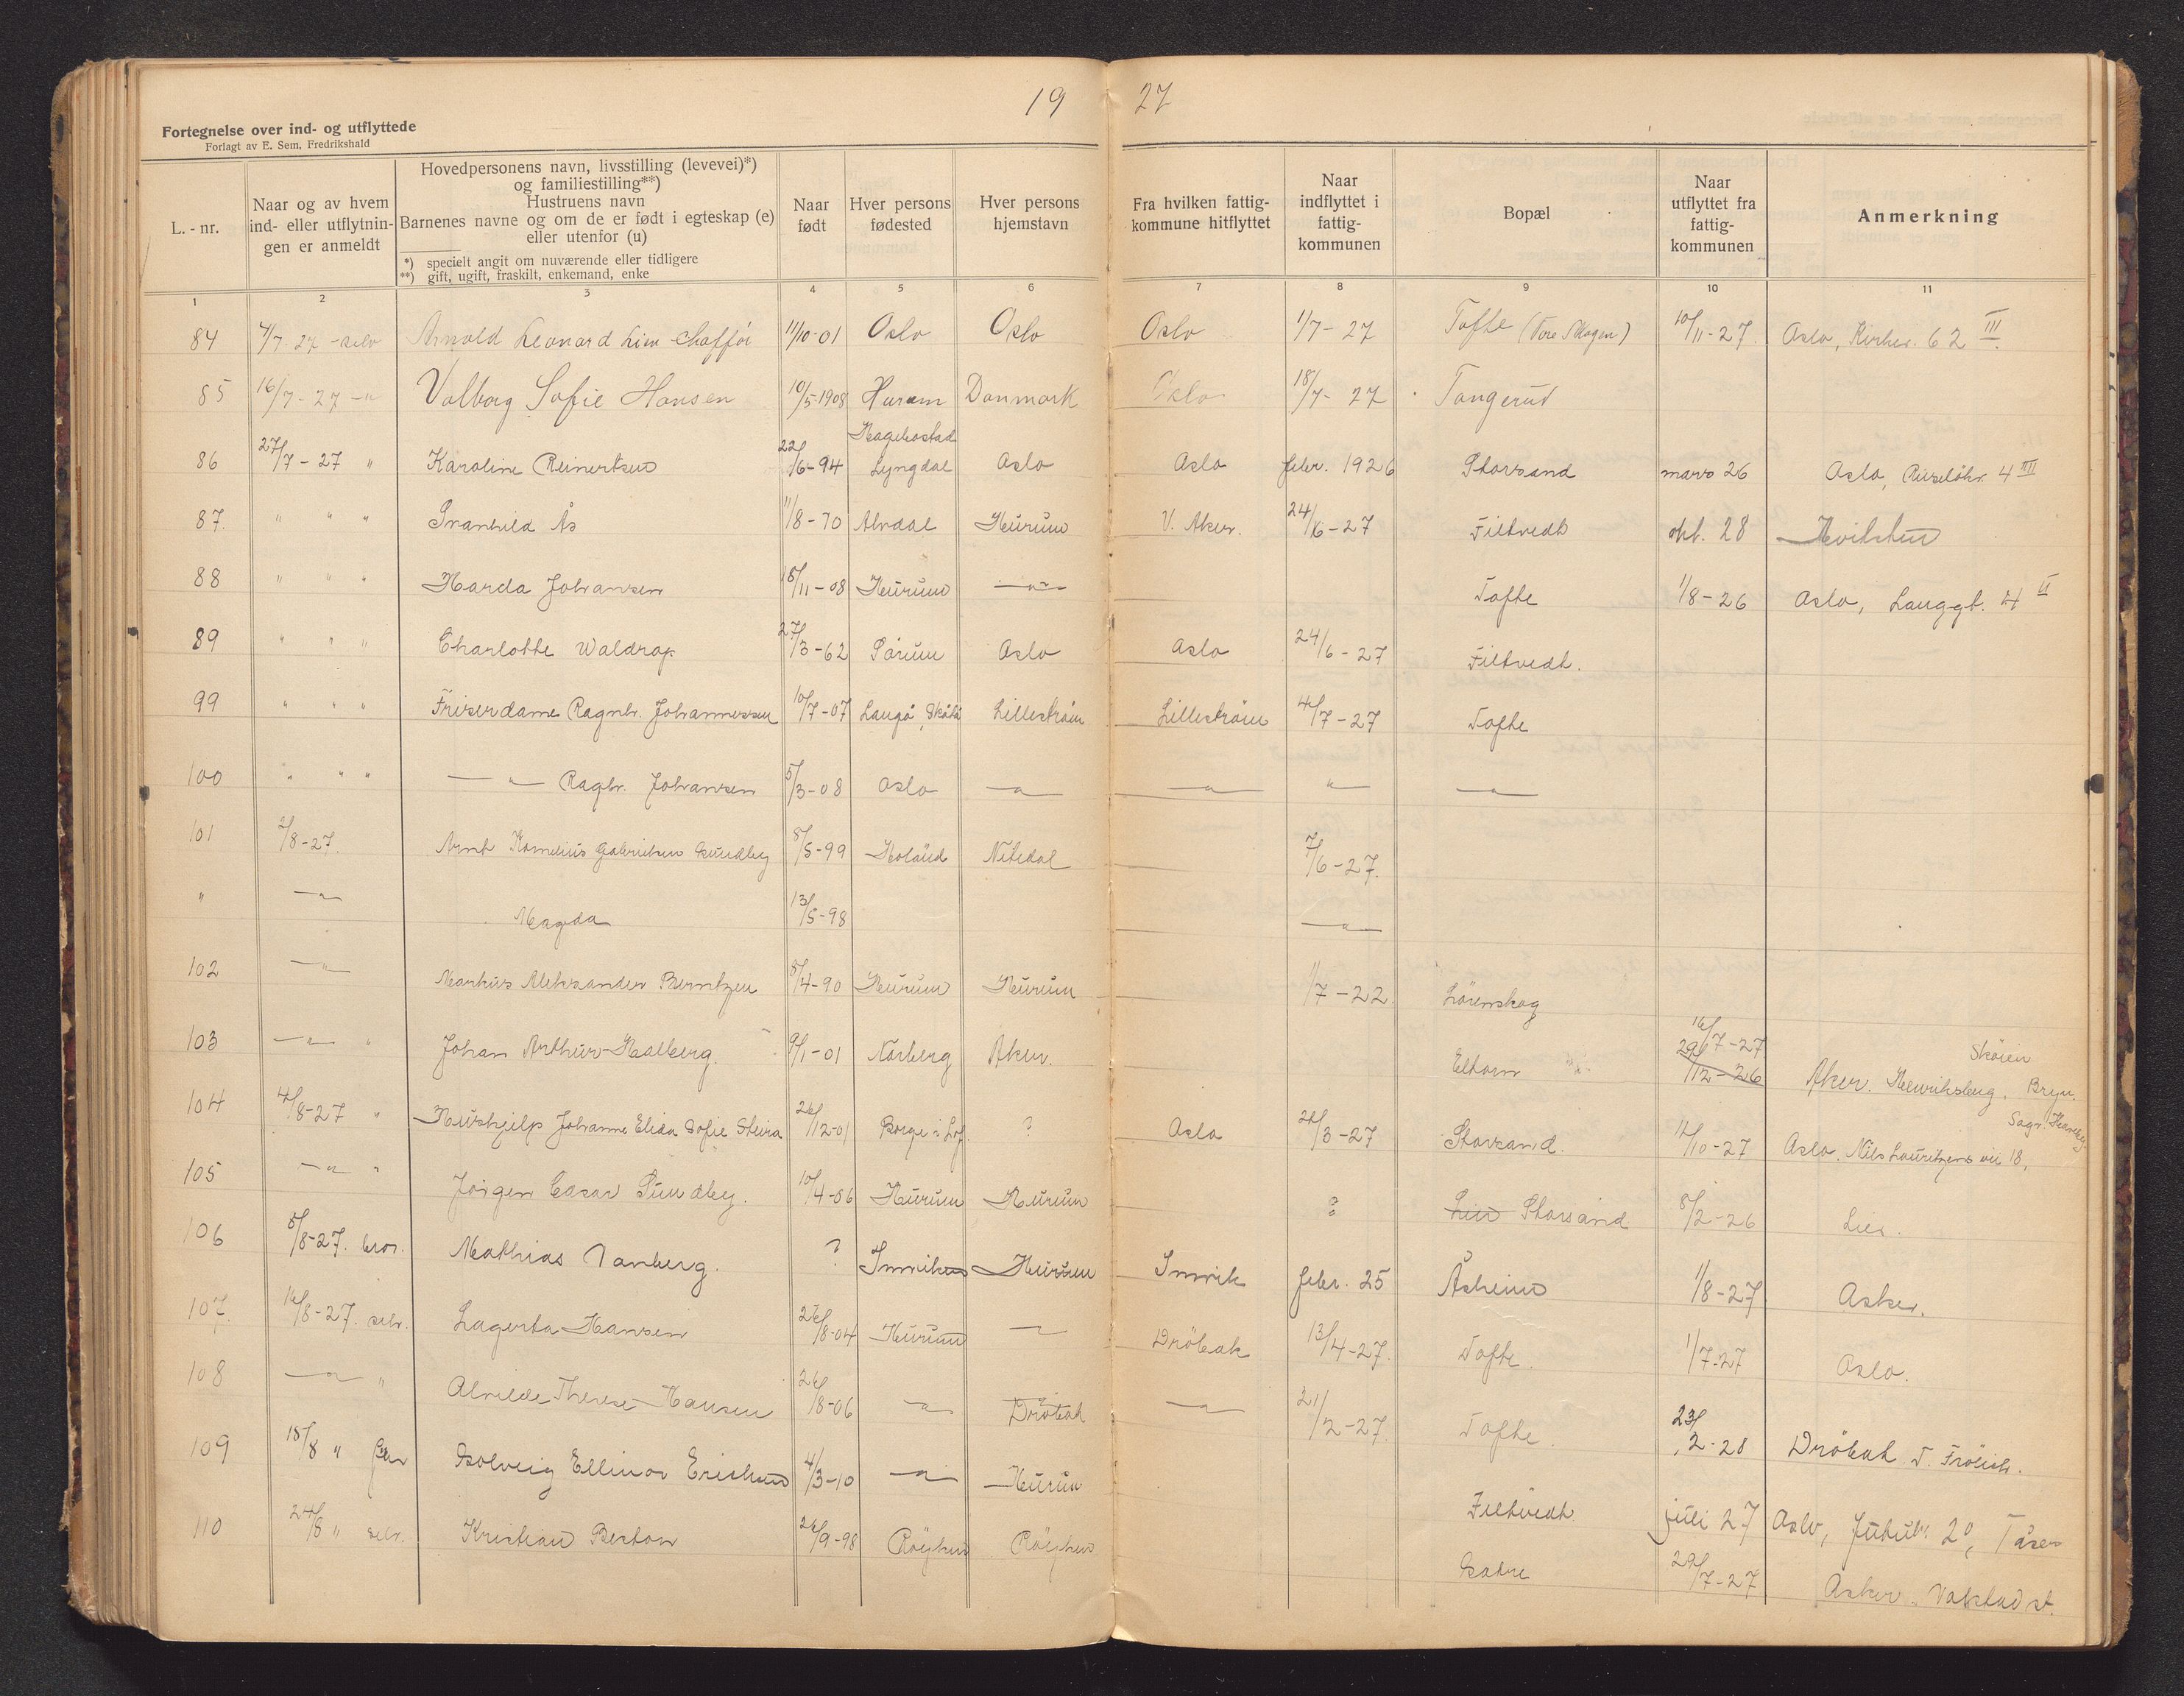 19 27
Fortegnelse over ind- og utflyttede
Forlagt av E. Sem, Fredrikshald
L.-nr.
Naar og av hvem ind- eller utflytnin- gen er anmeldt
Hovedpersonens navn, livsstilling (levevei)*)
og familiestilling**)
Hustruens navn
Barnenes navne og om de er født i egteskap (e)
eller utenfor (u)
*) specielt angit om nuværende eller tidligere
**) gift, ugift, fraskilt, enkemand, enke
Naar født
Hver persons fødested
Hver persons hjemstavn
Fra hvilken fattig- kommune hitflyttet
Naar indflyttet i fattig- kommunen
Bopæl
Naar utflyttet fra fattig- kommunen
Anmerkning
1 2 3 4 5 6 7 8 9 10 11
84 4/7-27 - selv Arnold Leonard Lien chafför 11/10-01 Oslo Oslo Oslo 1/7-27 Tofte (Tore Skogen) 10/11-27. Oslo, Kirkev. 62 III
85 16/7-27 -" Valborg Sofie Hansen 10/5-1908 Hurum Danmark Oslo 18/7-27 Tangerud
Hagebostad
86 27/7-27 " Karoline Reinertsen 22/6-94 Lyngdal Oslo Oslo febr. 1926 Storsand mars 26 Oslo, 4 III
87. " " " Svanhild Ås 11/8-70 Alvdal Hurum V. Aker. 24/6-27 Filtvedt okt. 28 Hvitsten
88 " " " Harda Johansen 18/11-08 Hurum —"— Tofte 1/8-26 Oslo, Langgt. 4 II
89 " " " Charlotte Waldrop 27/3-62 Sörum Oslo Oslo 24/6-27 Filtvedt.
99 " " " Friserdame Ragnh. Johannessen 10/7-07 Langö, Skåtö Lilleström Lilleström 4/7-27 Tofte
100 " " " —"— Ragh. Johansen 5/3-08 Oslo —"— —"— —"— —"—
101 2/8-27. Arnt Kornelius Gabrielsen Sundby 8/5-99 Höland Nitedal 7/6-27.
" —"— Magda 13/5-98 —"—
102 —"— Markus Aleksander Berntzen 8/4-90 Hurum Hurum 1/7-22. Lörenskog
16/7-27
103 —"— " Johan Arthur Halberg. 9/1-01 Norberg Aker. Eltorn 29/12-26 Aker. Henriksberg, Bryn. Sköien
104 4/8-27 " Hushjelp Johanne Elida Sofie Steira 26/12-01 Borge i Lof. ? Oslo 24/3-27 Storsand. 14/10-27 Oslo, Nils Lauritzens vei 18,
105 —"— " Jörgen Cæsar Sundby. 10/4-06 Hurum Hurum ? Storsand 8/2-26 Lier.
106 8/8-27. bror. Mathias Tanberg. ? Innvik Hurum Innvik febr. 25 Åsheim 1/8-27 Asker.
107. 16/8-27. selv. Lagerta Hansen 26/8-04 Hurum —"— Dröbak 13/4-27. Tofte. 1/7-27 Oslo.
108 —"— " Alvilde Therese Hansen 26/8-06 —"— Dröbak —"— 21/2-27. Tofte. 23/2-28 Dröbak T. Frölich.
109 18/8 " far Solveig Ellinor Eriksen 4/3-10 —"— Hurum Filtvedt juli 27 Oslo, Jutulv. 20, Tåsen
110 24/8 " selv. Kristian Beston 26/9-98 Röyken Röyken Sætre 29/7-27 Asker. Vakstad st.